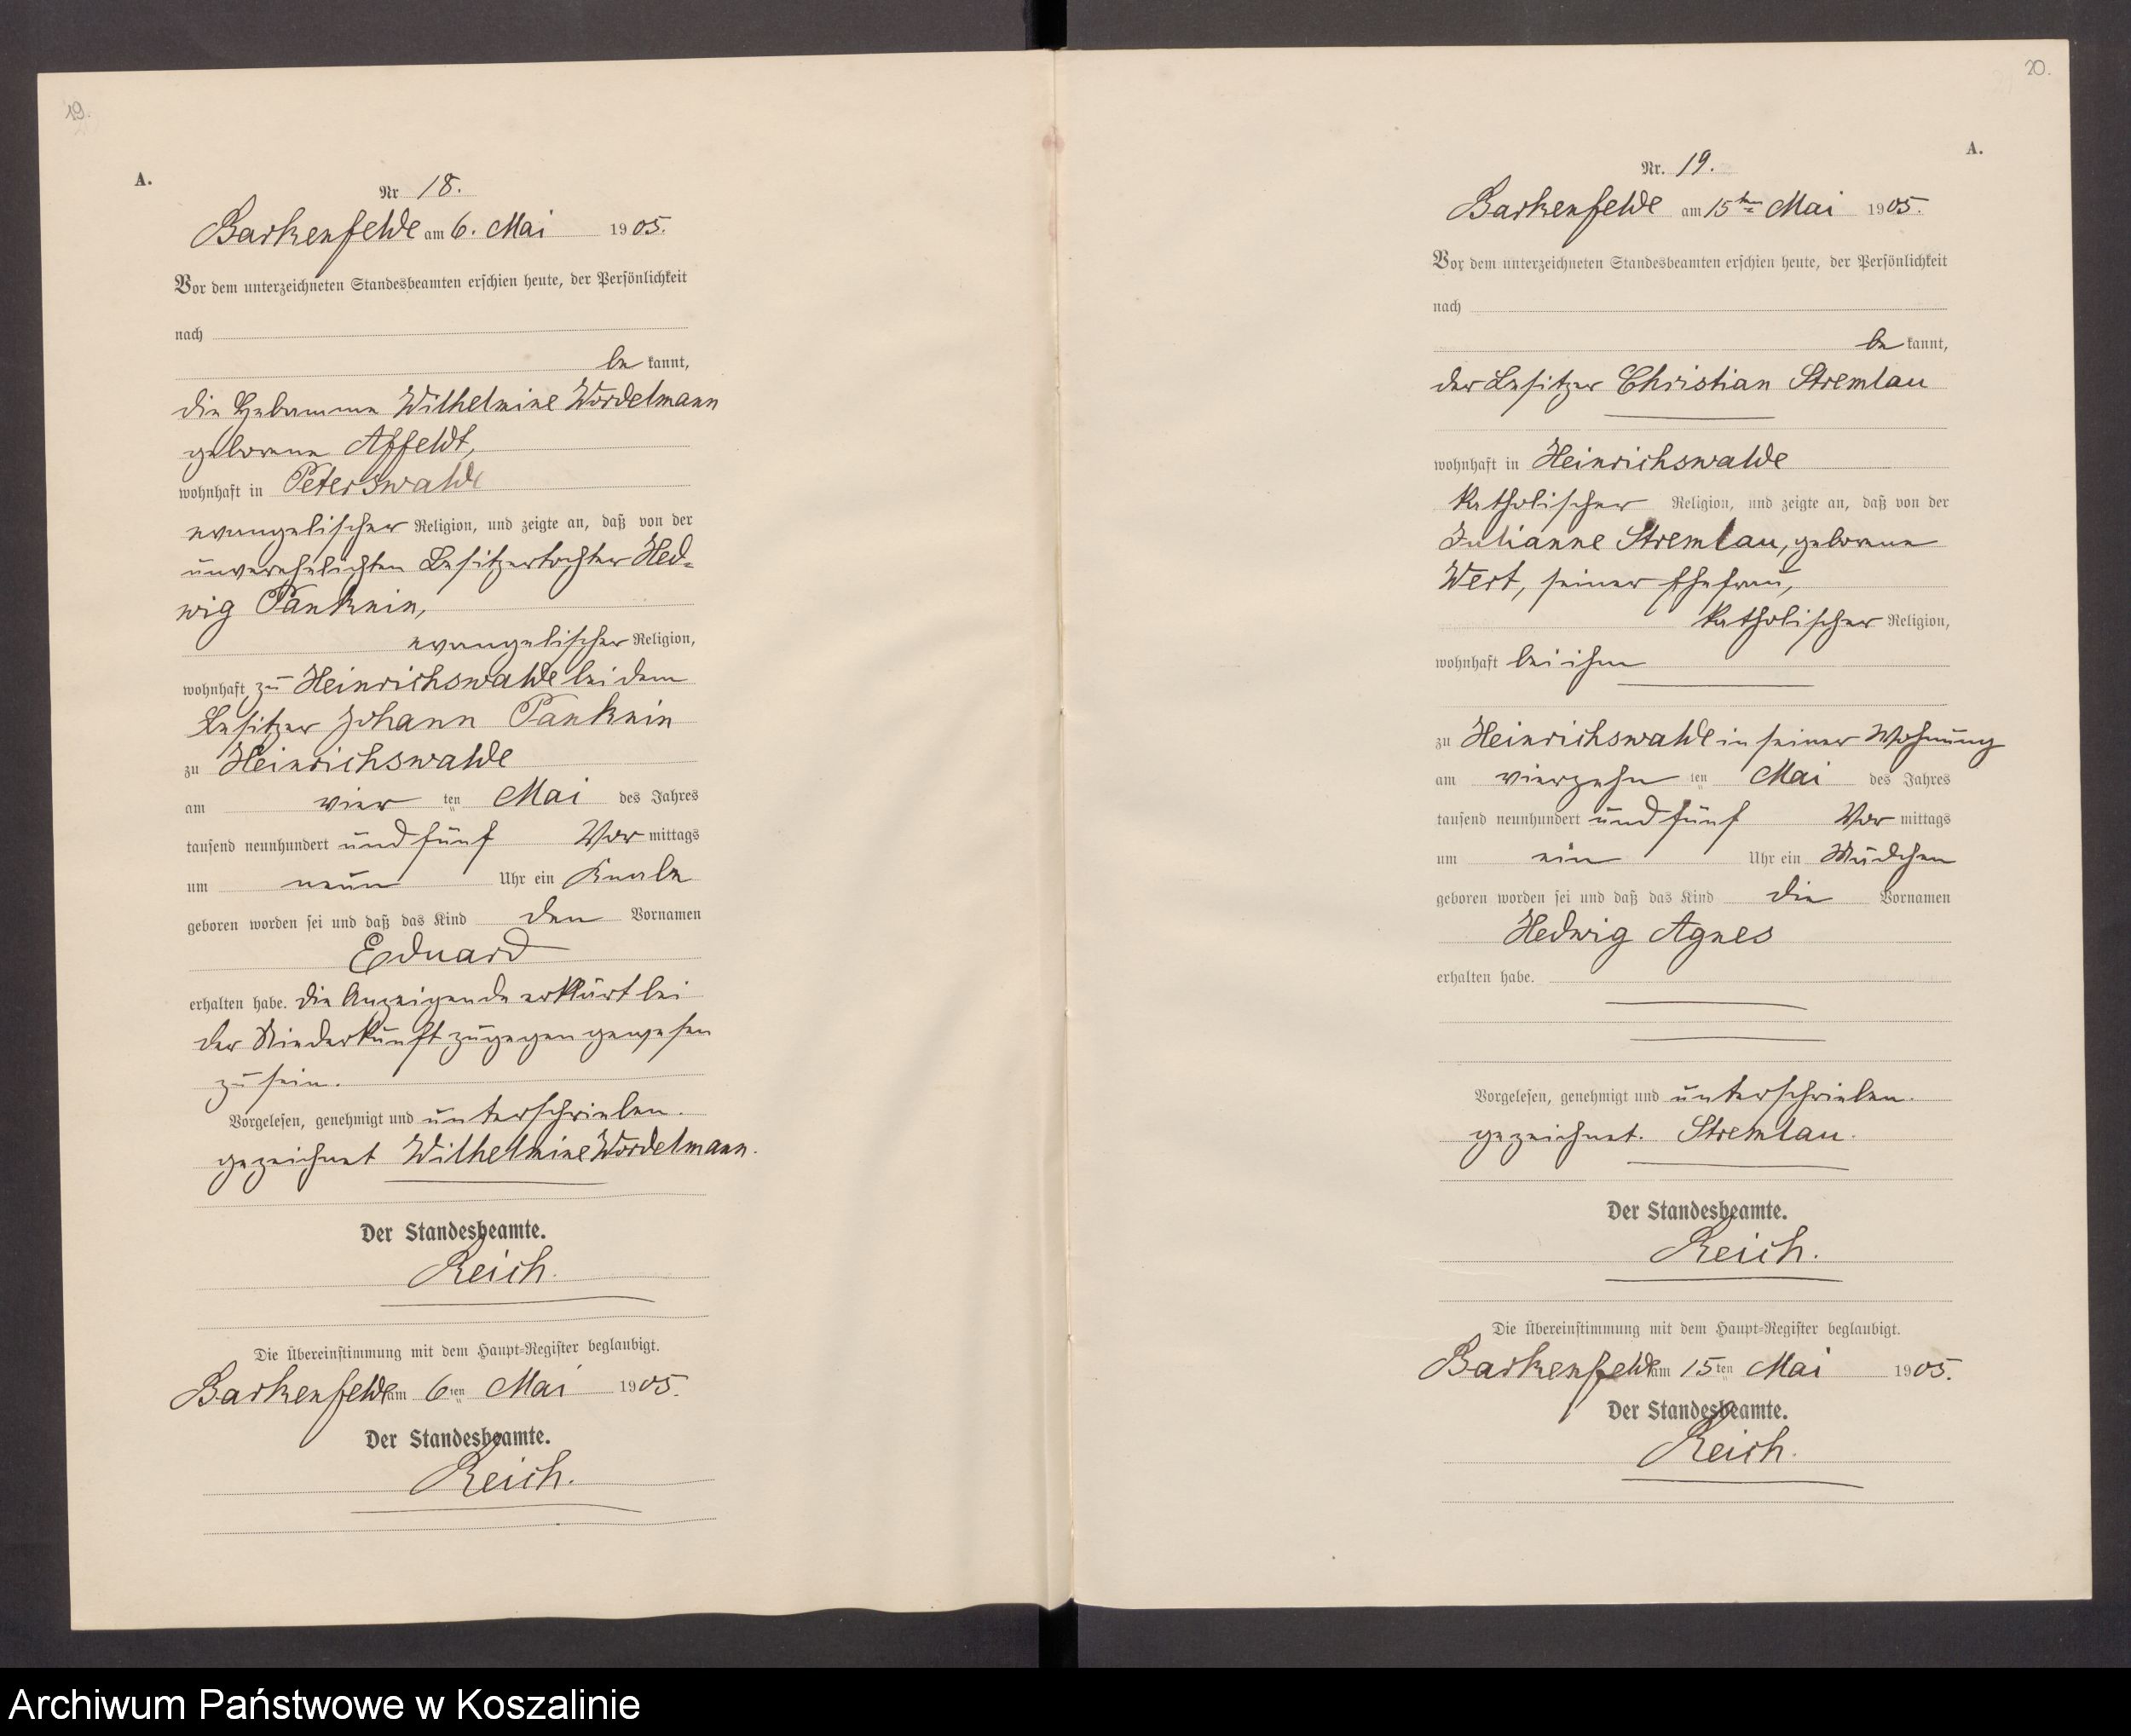 19.
A.
Nr 18.
Barkenfelde am 6. Mai 1905.
Vor dem unterzeichneten Standesbeamten erschien heute, der Persönlichkeit
nach
be kannt,
die Hebamme Wilhelmine Wordelmann
geborene Affeldt,
wohnhaft in Peterswalde
evangelischer Religion, und zeigte an, daß von der
unverehelichten Besitzertochter Hed-
wig Panknin,
evangelischer Religion,
wohnhaft zu Heinrichswalde bei dem
Besitzer Johann Panknin
zu Heinrichswalde
am vier ten Mai des Jahres
tausend neunhundert und fünf Vor mittags
um neun Uhr ein Knabe
geboren worden sei und daß das Kind den Vornamen
Eduard
erhalten habe. Die Anzeigende erklärt bei
der Niederkunft zugegen gewesen
zu sein.
Vorgelesen, genehmigt und unterschrieben.
gezeichnet Wilhelmine Wordelmann.
Der Standesbeamte.
Reich.
Die Übereinstimmung mit dem Haupt-Register beglaubigt.
Barkenfelde am 6ten Mai 1905.
Der Standesbeamte.
Reich.
20.
A.
Nr. 19.
Barkenfelde am 15ten Mai 1905.
Vor dem unterzeichneten Standesbeamten erschien heute, der Persönlichkeit
nach
be kannt,
der Besitzer Christian Stremlau
wohnhaft in Heinrichswalde
katholischer Religion, und zeigte an, daß von der
Julianne Stremlau, geborene
Wert, seiner Ehefrau,
katholischer Religion,
wohnhaft bei ihm
zu Heinrichswalde in seiner Wohnung
am vierzehn ten Mai des Jahres
tausend neunhundert und fünf Vor mittags
um ein Uhr ein Mädchen
geboren worden sei und daß das Kind die Vornamen
Hedwig Agnes
erhalten habe.
Vorgelesen, genehmigt und unterschrieben.
gezeichnet. Stremlau.
Der Standesbeamte.
Reich.
Die Übereinstimmung mit dem Haupt-Register beglaubigt.
Barkenfelde am 15ten Mai 1905.
Der Standesbeamte.
Reich.
Archiwum Państwowe w Koszalinie